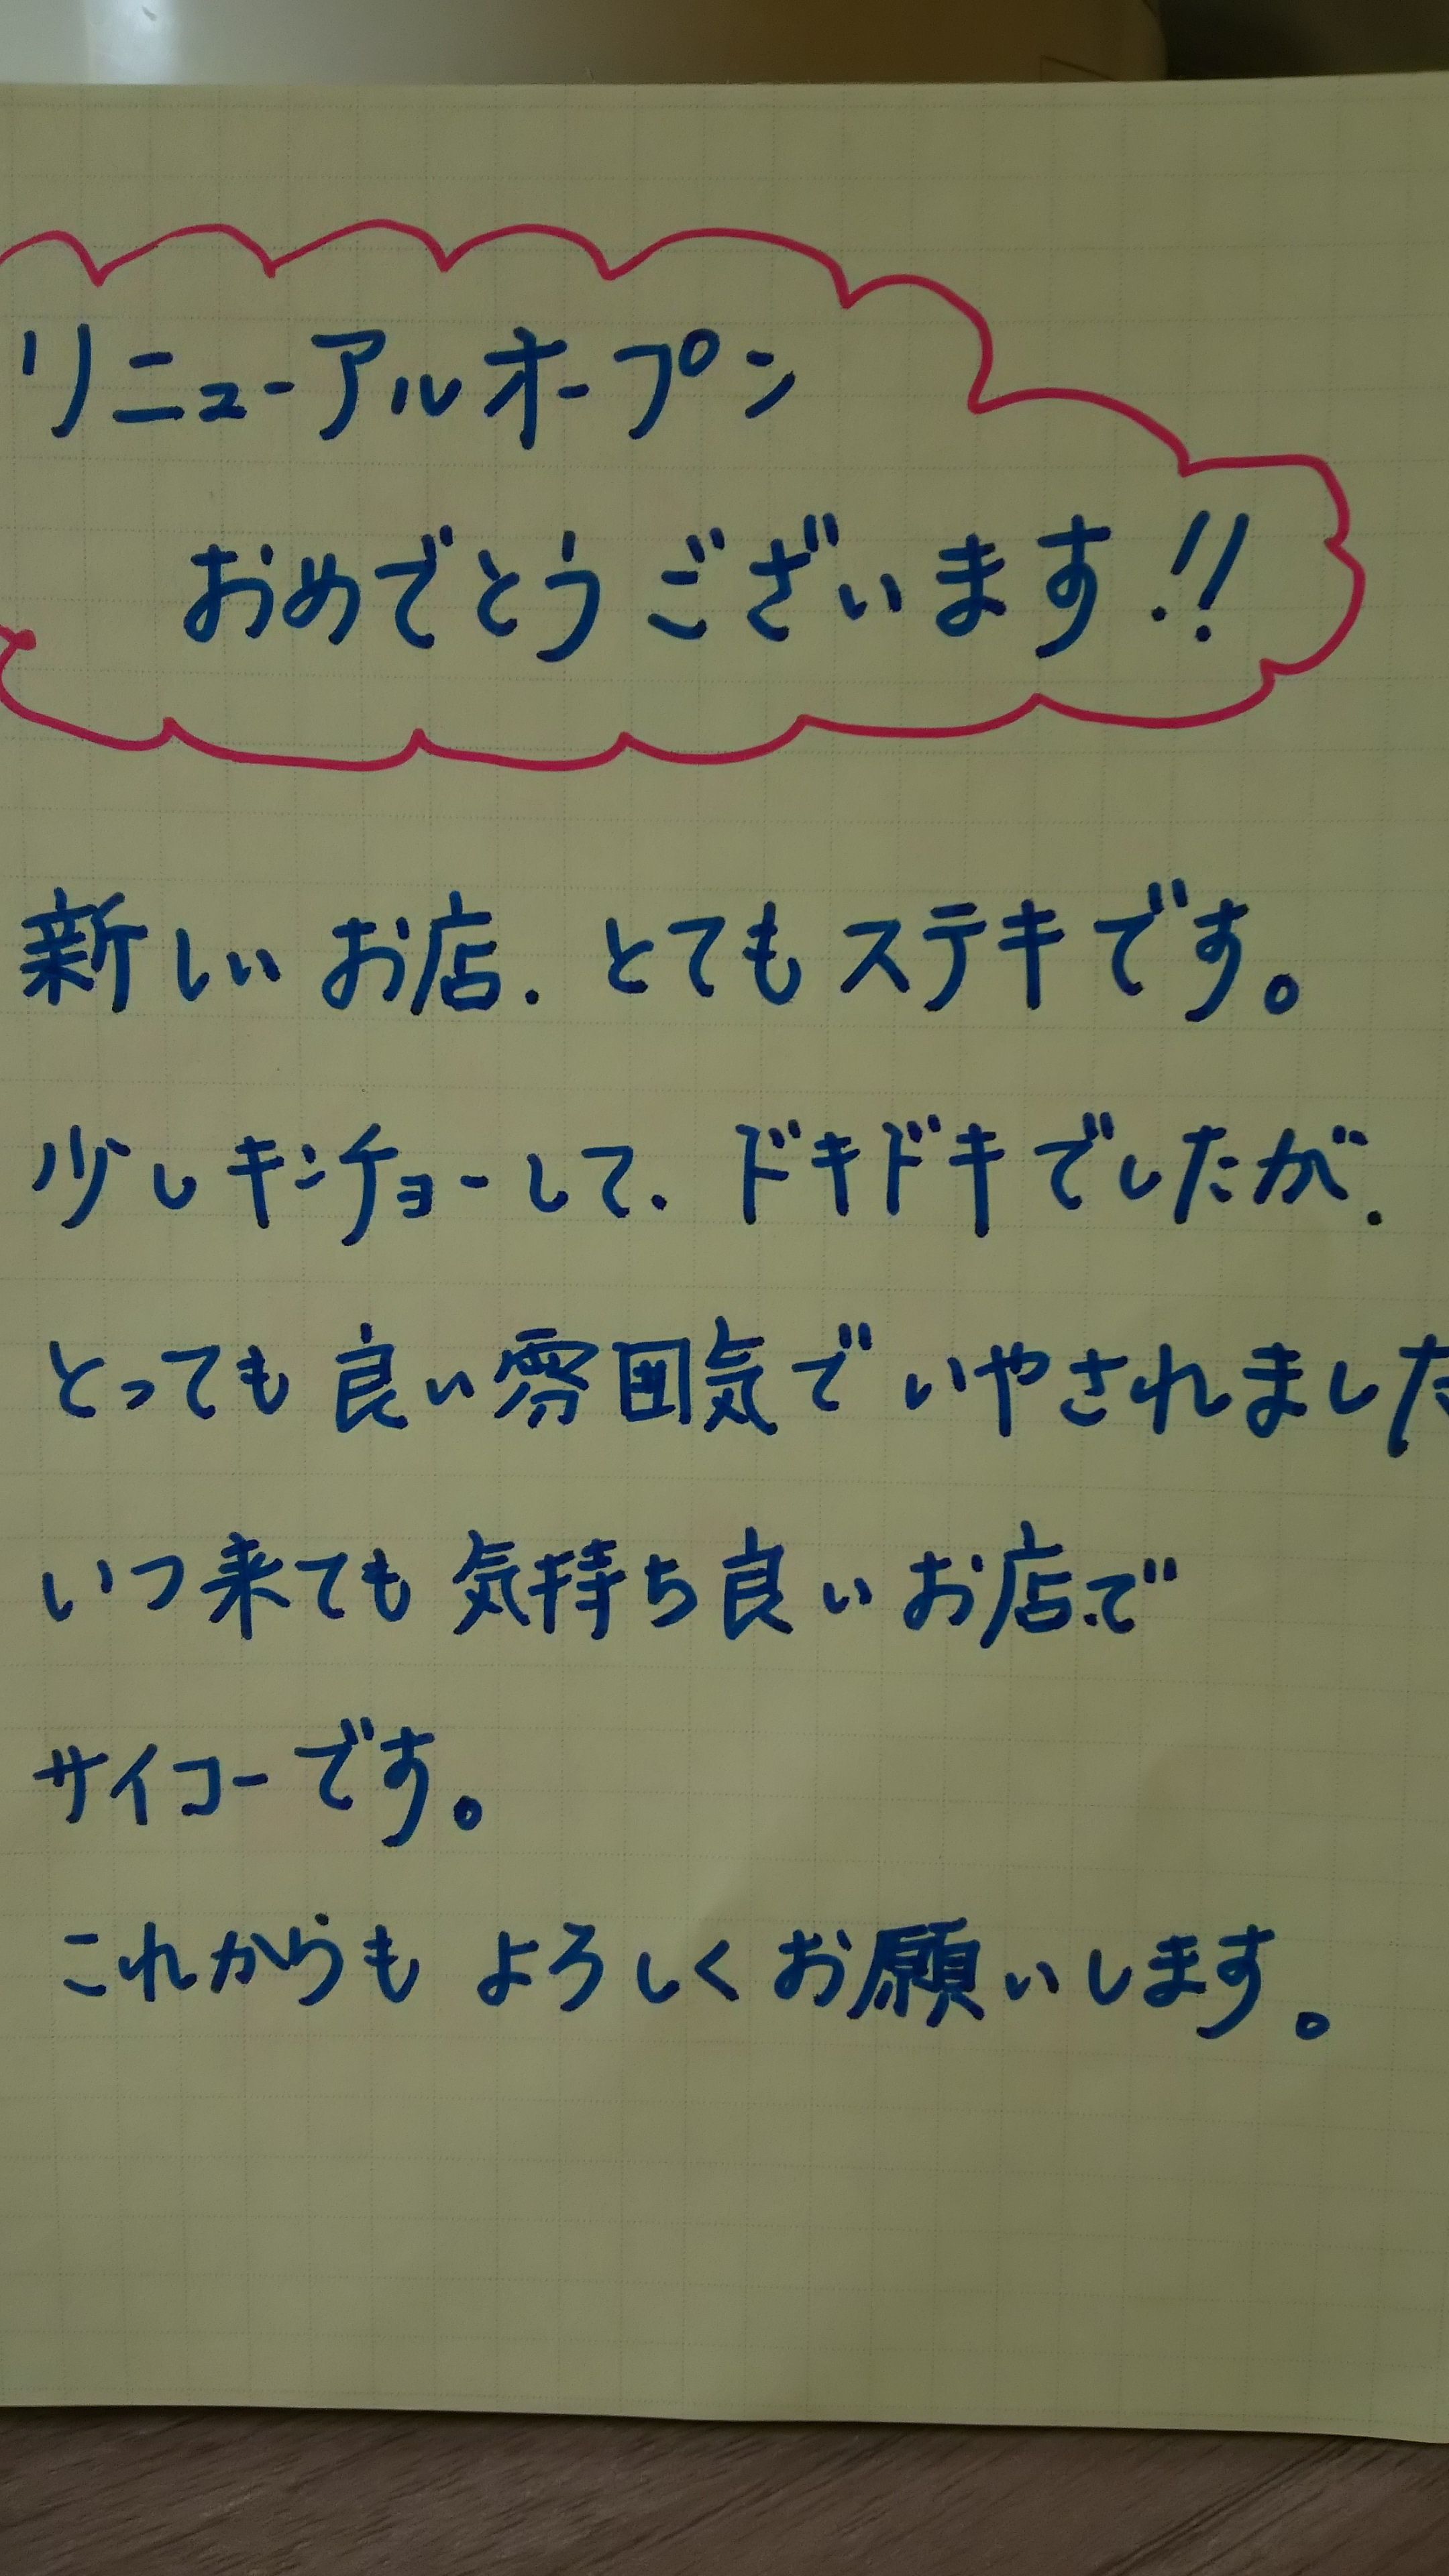 リニューアルオープン
おめでとうございます!!
新しいお店、とてもステキです。
少しキンチョーして、ドキドキでしたが、
とっても良い雰囲気でいやされました
いつ来ても気持ち良いお店で
サイコーです。
これからもよろしくお願いします。